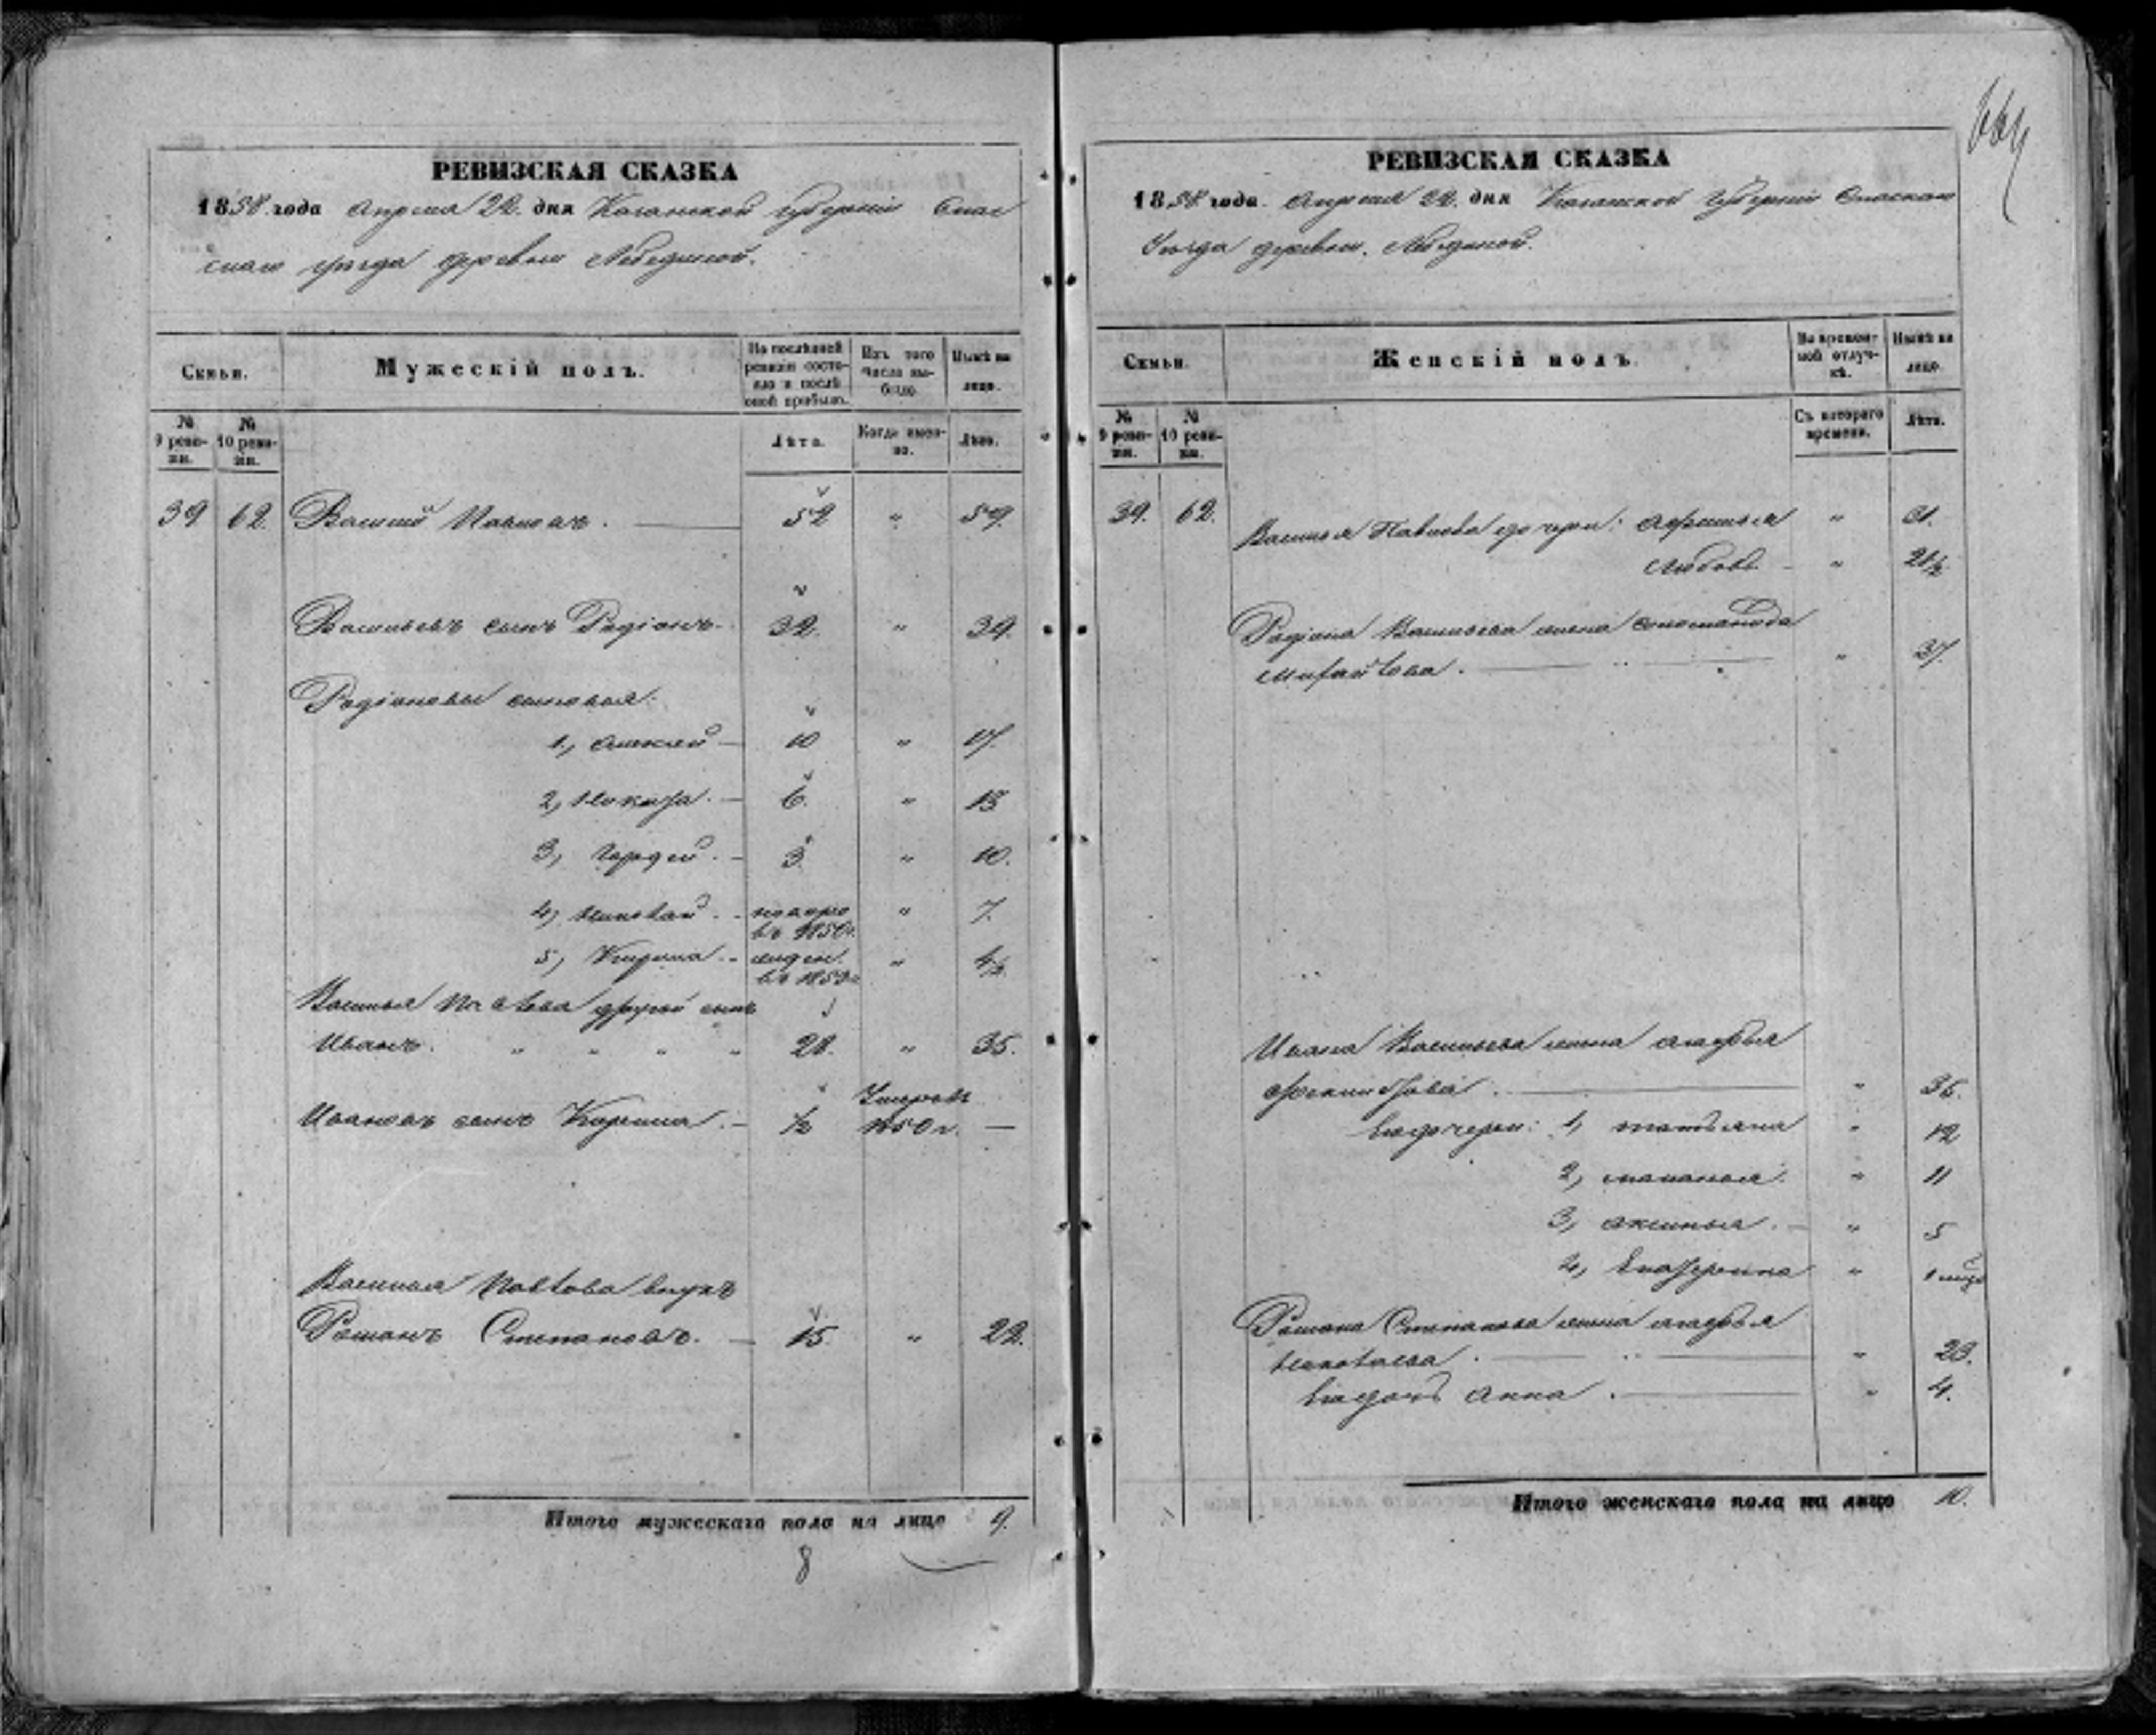 664
РЕВИЗСКАЯ СКАЗКА
1858 года Апреля 22 дня Казанской губернии Спас
скаго уезда деревни Лебединой.
Семьи.
Мужескій полъ.
По послѣдней ревизіи состояло и послѣ оной прибыло.
Изъ того числа выбыло.
Нынѣ на лицо.
№ 9 ревизіи.
№ 10 ревизіи.
Лѣта.
Когда именно.
Лѣта.
39 62 Василій Павловъ. 52 " 59
Васильевъ сынъ Родіонъ. 32. " 39.
Родіоновы сыновья:
1, Алексей 10 " 17.
2, Никита. 6. " 13
3, Гордей. 3 " 10.
4, Николай. " 7.
въ 1850 г.
5, Кирила. " 4½
въ 1853 г.
Василья Павлова другой сынъ
Иванъ. " " " " 28. " 35.
Ивановъ сынъ ½ Умеръ въ 1850 г. —
Василья Павлова внукъ
Романъ Степановъ. 15. " 22.
Итого мужескаго пола на лицо 9.
8
РЕВИЗСКАЯ СКАЗКА
1858 года. Апреля 22. дня Казанской Губерніи Спаскаго
Уезда деревни. Лебединой.
Семьи.
Женскій полъ.
Во временной отлучкѣ.
Нынѣ на лицо.
№ 9 ревизіи.
№ 10 ревизіи.
Съ котораго времени.
Лѣта.
39. 62. Василья Павлова дочери: "
Любовь. "
Родіона Васильева жена Соломанида
Михайлова. " 37.
Ивана Васильева жена Марфа
" 35.
Ея дочери: 1, Татьяна " 12
2, Маланья. " 11
3, Аксинья. " 5
4, Екатерина "
Романа Степанова жена Марфа
Николаева. " 23.
Ея дочь Анна. " 4.
Итого женскаго пола на лицо 10.